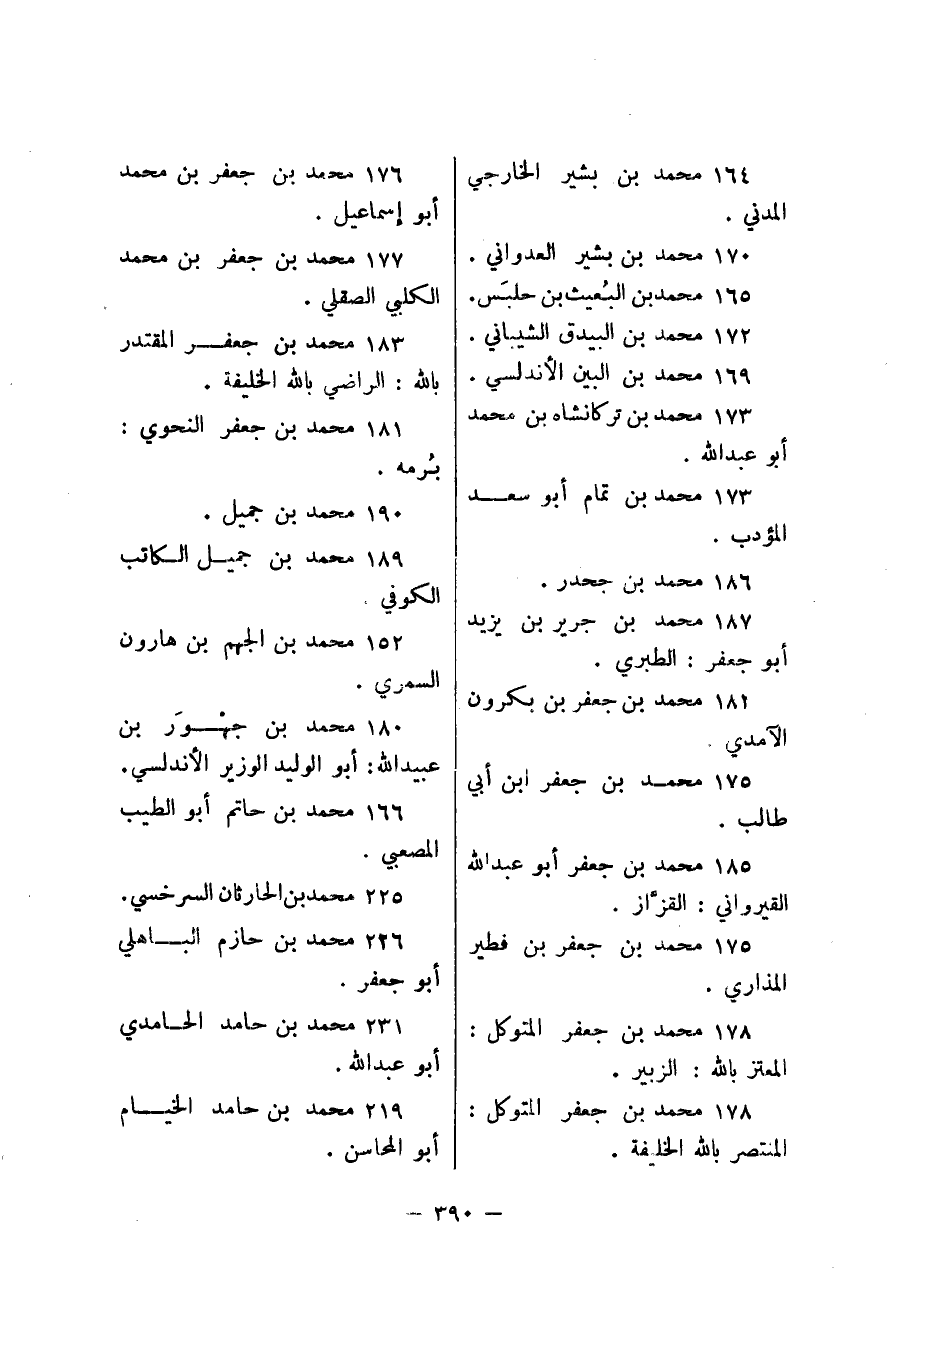 ١٦٤ محمد بن بشير الخارجي
المدني .
١٧٠ محمد بن بشير العدواني .
١٦٥ محمد بن البُعيث بن حلبَس.
١٧٢ محمد بن البيدق الشيباني .
١٦٩ محمد بن البين الأندلسي .
١٧٣ محمد بن تركانشاه بن محمد
أبو عبدالله .
١٧٣ محمد بن تمام أبو سعد
المؤدب .
١٨٦ محمد بن جحدر .
١٨٧ محمد بن جرير بن يزيد
أبو جعفر : الطبري .
١٨٢ محمد بن جعفر بن بكرون
الآمدي .
١٧٥ محمد بن جعفر ابن أبي
طالب .
١٨٥ محمد بن جعفر أبو عبدالله
القيرواني : القزّاز .
١٧٥ محمد بن جعفر بن فطير
المذاري .
١٧٨ محمد بن جعفر المتوكل :
المعتز بالله : الزبير .
١٧٨ محمد بن جعفر المتوكل :
المنتصر بالله الخليفة .
١٧٦ محمد بن جعفر بن محمد
أبو إسماعيل .
١٧٧ محمد بن جعفر بن محمد
الكلبي الصقلي .
١٨٣ محمد بن جعفر المقتدر
بالله : الراضي بالله الخليفة .
١٨١ محمد بن جعفر النحوي :
بُرمه .
١٩٠ محمد بن جميل .
١٨٩ محمد بن جميل الكاتب
الكوفي .
١٥٢ محمد بن الجهم بن هارون
السمري .
١٨٠ محمد بن جهْوَر بن
عبيدالله: أبو الوليد الوزير الأندلسي.
١٦٦ محمد بن حاتم أبو الطيب
المصعبي .
٢٢٥ محمد بن الحارثان السرخسي.
٢٢٦ محمد بن حازم الباهلي
أبو جعفر .
٢٣١ محمد بن حامد الحامدي
أبو عبدالله .
٢١٩ محمد بن حامد الخيام
أبو المحاسن .
— ٣٩٠ —